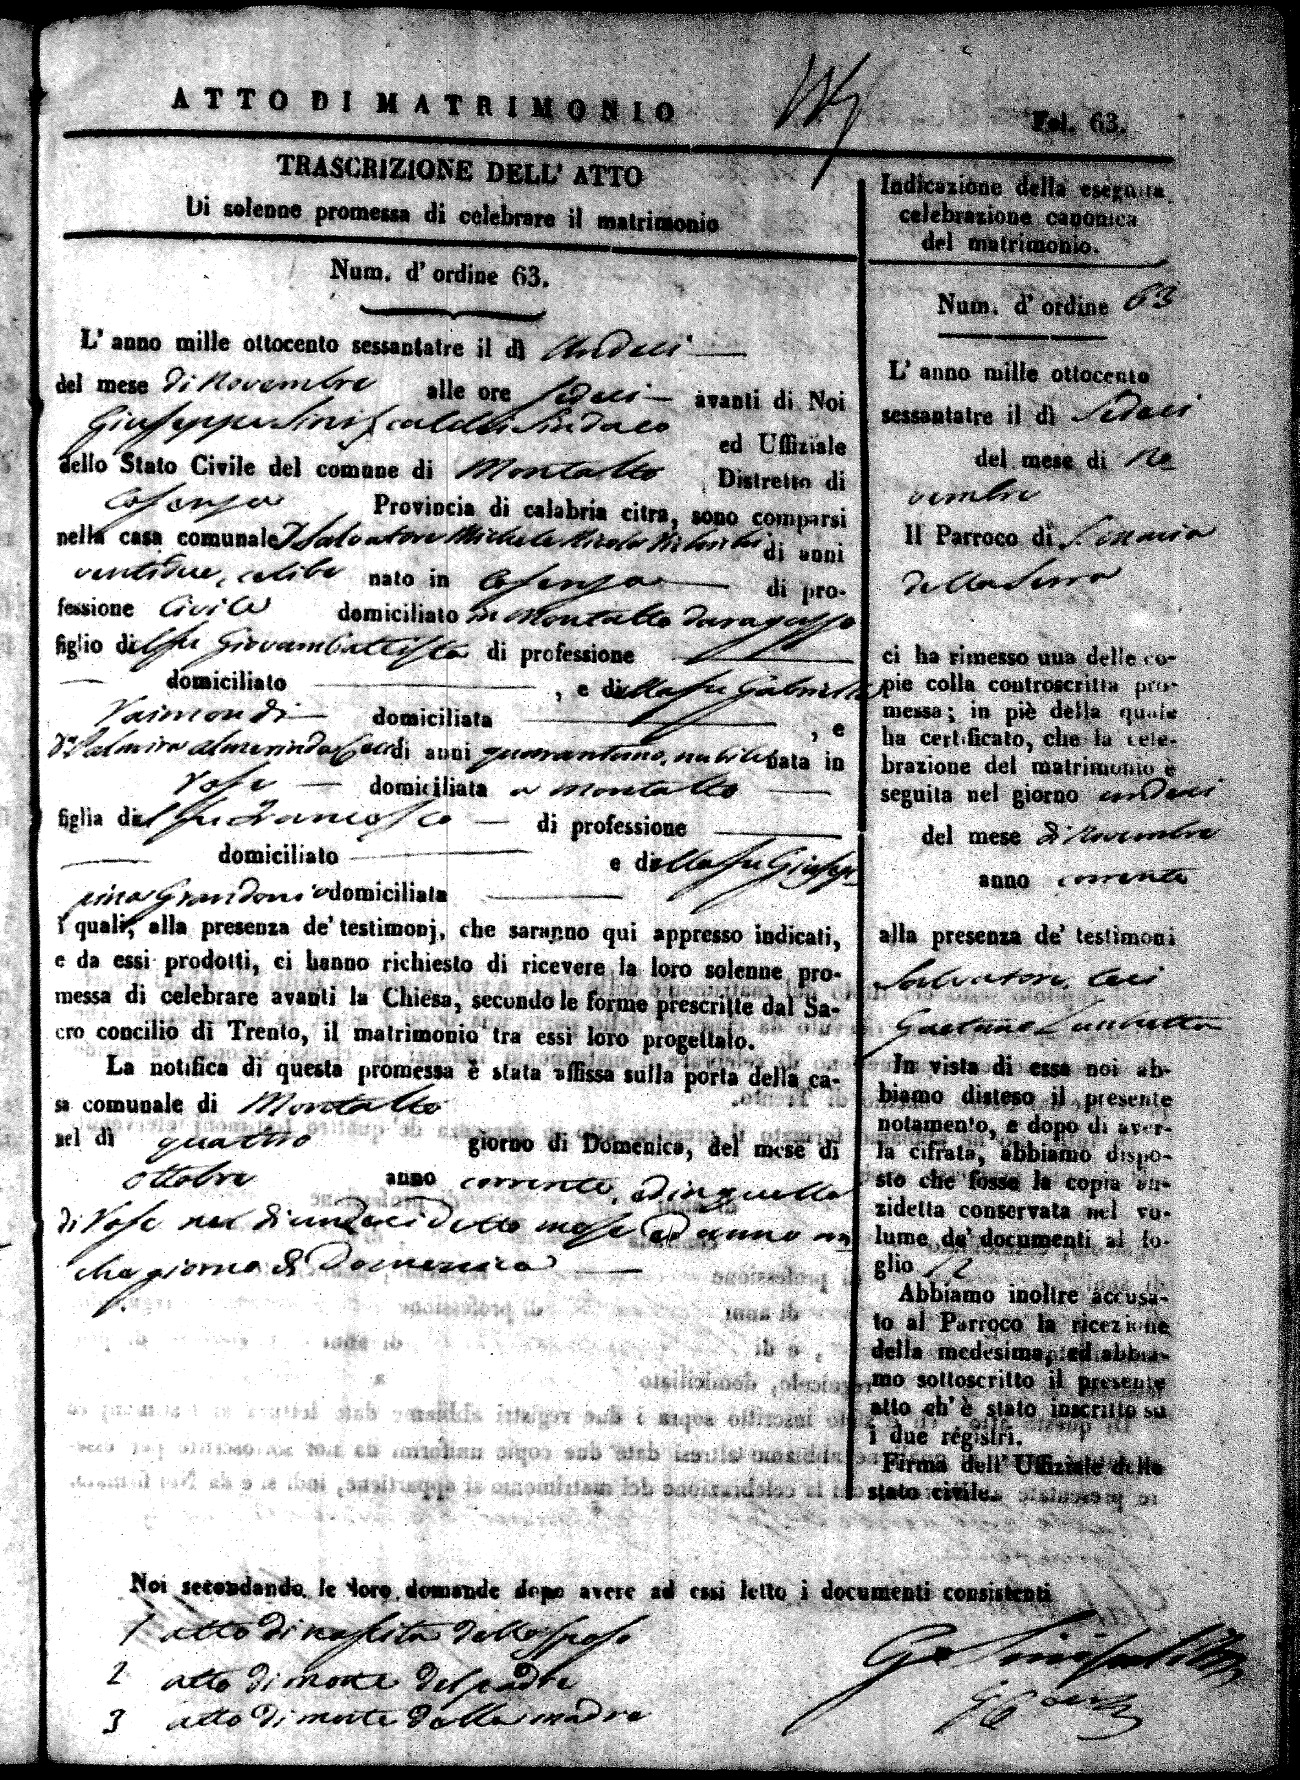 ATTO DI MATRIMONIO
Fol. 63.
TRASCRIZIONE DELL' ATTO
Di solenne promessa di celebrare il matrimonio
Num. d' ordine 63.
L' anno mille ottocento sessantatre il dì Undeci
del mese di Novembre alle ore sedeci avanti di Noi
Giuseppe Siniscalchi Sindaco ed Uffiziale
dello Stato Civile del comune di Montalto Distretto di
Cosenza Provincia di calabria citra, sono comparsi
nella casa comunale Salvatore Michele Nicola di anni
ventidue, celibe nato in Cosenza di pro-
fessione Civile domiciliato in Montalto
figlio del fu Giovambattista di professione
domiciliato , e della fu Gabriella
Raimondi domiciliata , e
Palmira Almerinda Ceci di anni quarantuno, nubile nata in
Rose domiciliata a Montalto
figlia del fu Francesco di professione
domiciliato e della fu Giusep
pina Grandoni domiciliata
i quali, alla presenza de' testimonj, che saranno qui appresso indicati,
e da essi prodotti, ci hanno richiesto di ricevere la loro solenne pro-
messa di celebrare avanti la Chiesa, secondo le forme prescritte dal Sa-
cro concilio di Trento, il matrimonio tra essi loro progettato.
La notifica di questa promessa è stata affissa sulla porta della ca-
sa comunale di Montalto
nel dì quattro giorno di Domenica, del mese di
ottobre anno corrente, ed in quella
di Rose nel dì undeci detto mese ed anno an
che giorno di Domenica
Noi secondando le loro domande dopo avere ad essi letto i documenti consistenti
1 atto di nascita dello sposo
2 atto di morte del padre
3 atto di morte della madre
Indicazione della eseguita
celebrazione canonica
del matrimonio.
Num. d' ordine 63
L' anno mille ottocento
sessantatre il dì Sedeci
del mese di No
vembre
Il Parroco di S. Maria
della Serra
ci ha rimesso una delle co-
pie colla controscritta pro-
messa; in piè della quale
ha certificato, che la cele-
brazione del matrimonio è
seguita nel giorno undeci
del mese di Novembre
anno corrente
alla presenza de' testimoni
Salvatore Ceci
Gaetano
In vista di essa noi ab-
biamo disteso il presente
notamento, e dopo di aver-
la cifrata, abbiamo dispo-
sto che fosse la copia an-
zidetta conservata nel vo-
lume de' documenti al fo-
glio 12
Abbiamo inoltre accusa-
to al Parroco la ricezione
della medesima, ed abbia-
mo sottoscritto il presente
atto ch' è stato inscritto su
i due registri.
Firma dell' Uffiziale dello
stato civile.